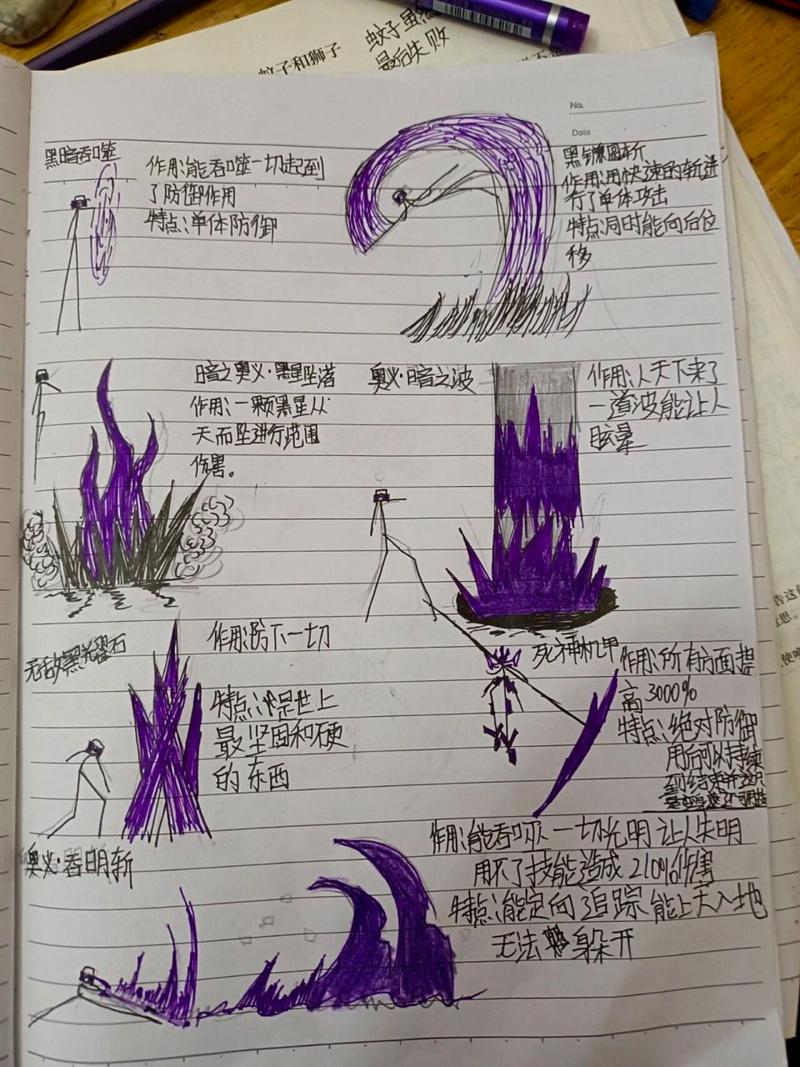 蚊子和狮子
蚊子虽然
最后失败
No.
Date
黑暗吞噬
作用:能吞噬一切起到
了防御作用
特点:单体防御
黑镰圆斩
作用:用快速的斩进
行了单体攻击
特点:同时能向后位
移
暗之奥义·黑星坠落
作用:一颗黑星从
天而坠进行范围
伤害。
奥义·暗之波
作用:从天下来了
一道波能让人
眩晕
无敌黑光碧石
作用:防下一切
特点:是世上
最坚固和硬
的东西
死神机甲
作用:所有方面提
高3000%
特点:绝对防御
用后可以持续
到结束并
奥义·吞明斩
作用:能吞噬一切光明 让人失明
用不了技能造成210%伤害
特点:能定向追踪、能上天入地
无法躲开